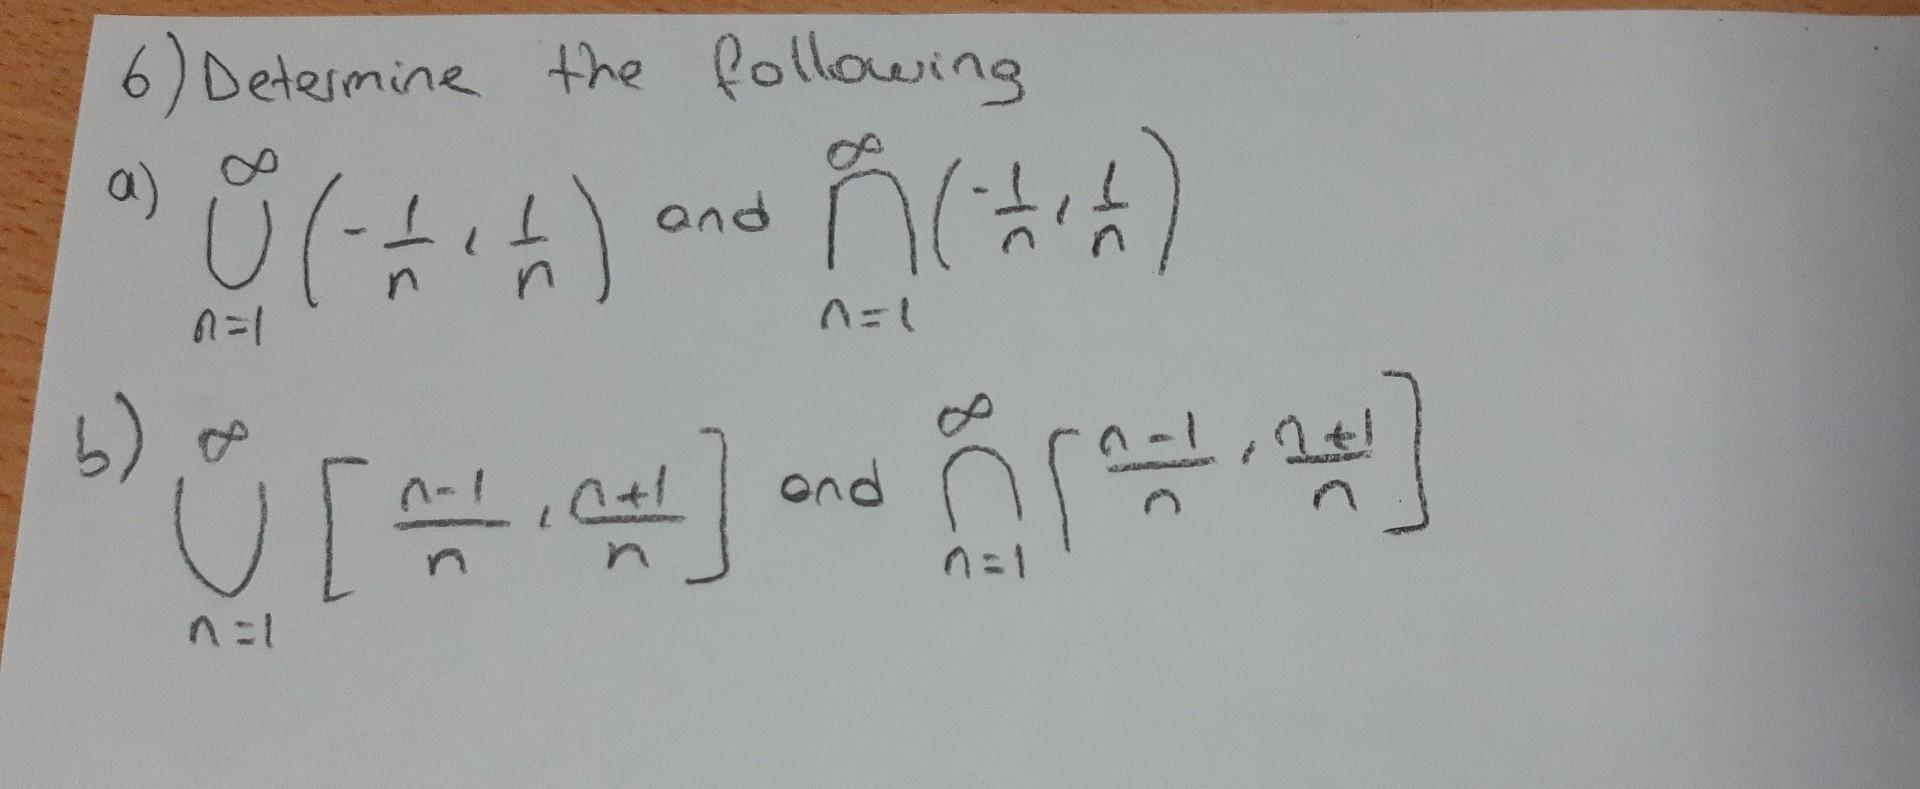 6) Determine the following
a) ∞ ⋃ n=1 (-1/n, 1/n) and ∞ ⋂ n=1 (-1/n, 1/n)
b) ∞ ⋃ n=1 [n-1/n, n+1/n] and ∞ ⋂ n=1 [n-1/n, n+1/n]